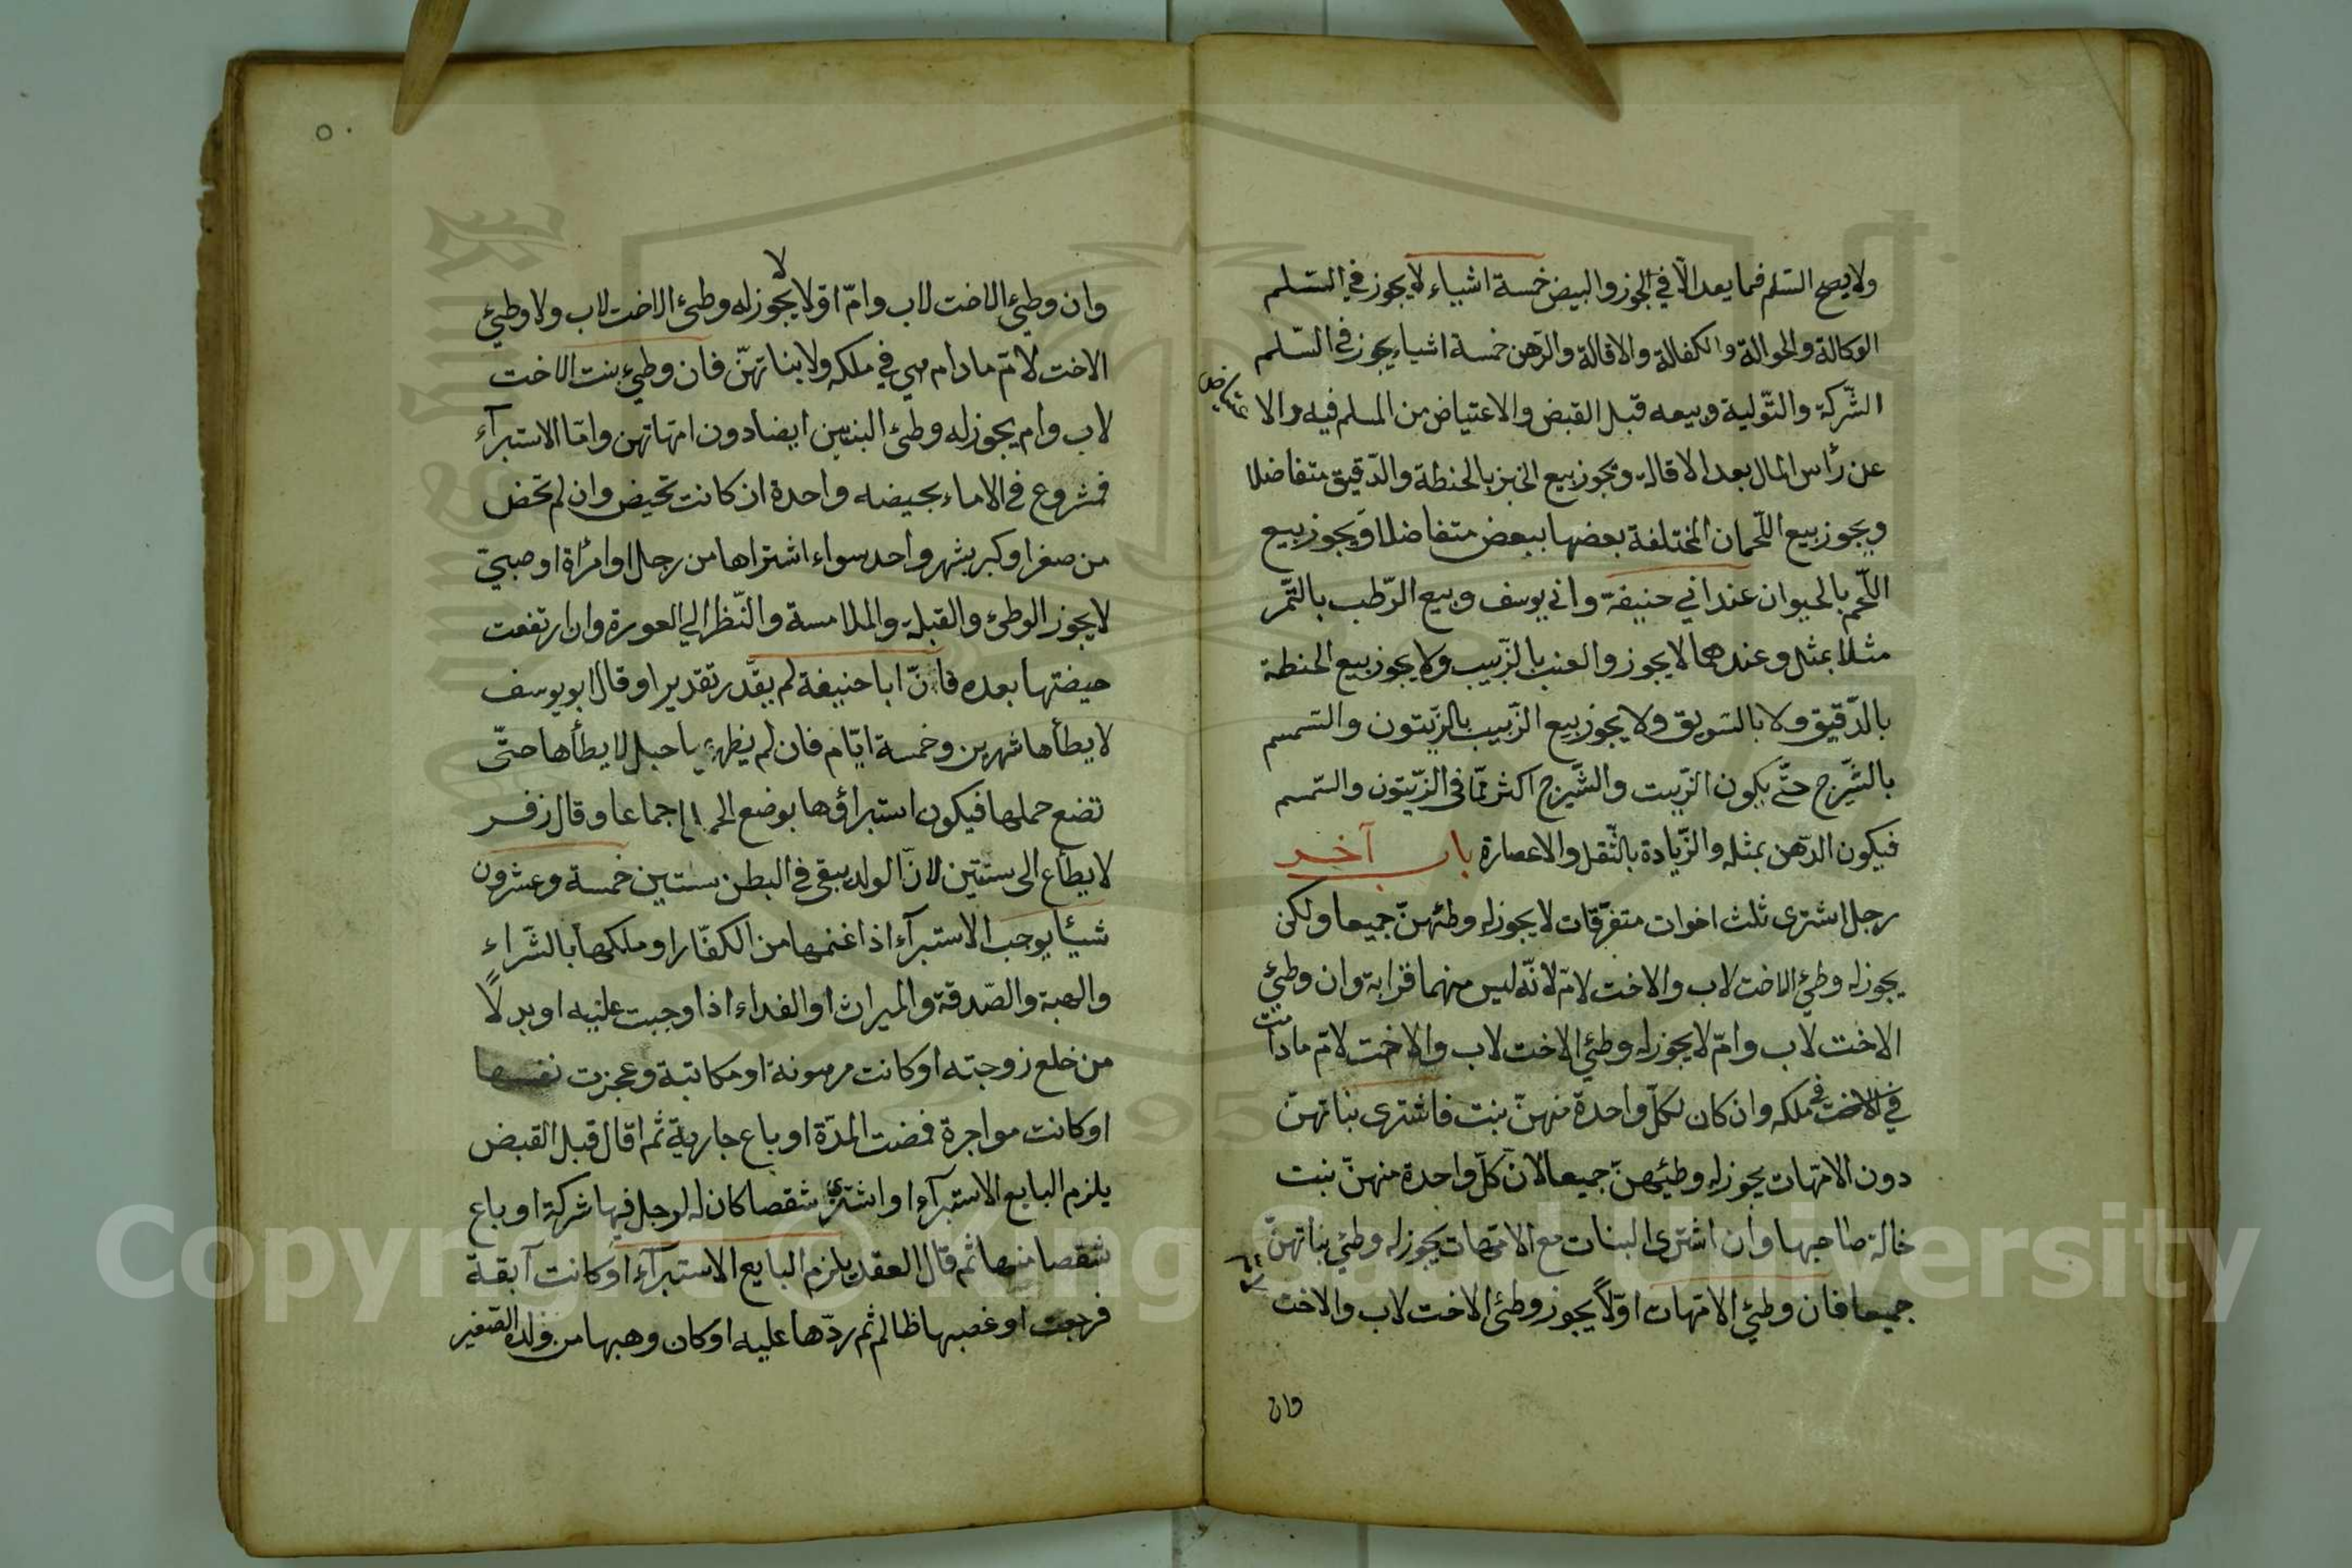 ولا يصح السّلم فما يعد الّا في الجوز والبيض خمسة اشياء لا يجوز في السّلم
الوكالة والحوالة والكفالة والاقالة والرّهن خمسة اشياء يجوز في السّلم
الشّركة والتّولية وبيعه قبل القبض والاعتياض من المسلم فيه والاعتياض
عن رأس المال بعد الاقالة ويجوز بيع الخبز بالحنطة والدّقيق متفاضلا
ويجوز بيع اللّحمان المختلفة بعضها ببعض متفاضلا ويجوز بيع
اللّحم بالحيوان عند ابي حنيفة وابي يوسف وبيع الرّطب بالتّمر
مثلا بمثل وعندهما لا يجوز والعنب بالزّبيب ولا يجوز بيع الحنطة
بالدّقيق ولا بالسّويق ولا يجوز بيع الزّبيب بالزّيتون والسّمسم
بالشّيرج حتّى يكون الزّيت والشّيرج اكثر ممّا في الزّيتون والسّمسم
فيكون الدّهن بمثله والزّيادة بالثّقل والاعصارة باب آخر
رجل اشترى ثلث اخوات متفرّقات لا يجوز له وطئهنّ جميعا ولكن
يجوز له وطئ الاخت لاب والاخت لامّ لانّه ليس منهما قرابة وان وطئ
الاخت لاب وامّ لا يجوز له وطئ الاخت لاب والاخت لامّ مادامت
في الاخت في ملكه وان كان لكلّ واحدة منهنّ بنت فاشترى بناتهنّ
دون الامّهات يجوز له وطيئهنّ جميعا لانّ كلّ واحدة منهنّ بنت
خالة صاحبها وان اشترى البنات مع الامّهات يجوز له وطئ بناتهنّ
جميعا فان وطئ الامّهات اوّلاً يجوز وطئ الاخت لاب والاخت
وان
٥٠
وان وطئ الاخت لاب وامّ اوّلا لا يجوز له وطئ الاخت لاب ولا وطئ
الاخت لامّ مادام هي في ملكه ولا بناتهنّ فان وطئ بنت الاخت
لاب وام يجوز له وطئ البنتين ايضا دون امّهاتهن وامّا الاستبرآء
فمشروع في الاماء بحيضه واحدة ان كانت تحيض وان لم تحض
من صغر او كبر بشهر واحد سواء اشتراها من رجل او امرأة او صبيّ
لا يجوز الوطئ والقبلة والملامسة والنّظر الي العورة وان ارتفعت
حيضتها بعده فانّ ابا حنيفة لم يقدّر تقديرا وقال ابو يوسف
لا يطأها شهرين وخمسة ايّام فان لم يظهر بها حبل لا يطأها حتّى
تضع حملها فيكون استبراؤها بوضع الحمل اجماعا وقال زفر
لا يطأع الى سنتين لانّ الولد يبقى في البطن سنتين خمسة وعشرون
شيئا يوجب الاستبرآء اذا غنمها من الكفّار او ملكها بالشّراء
والهبة والصّدقة والميراث او الفداء اذا وجبت عليه او بدلاً
من خلع زوجته او كانت مرهونة او مكاتبة وعجزت نفسها
او كانت مواجرة فمضت المدّة او باع جارية ثم اقال قبل القبض
يلزم البايع الاستبرآء او اشترى شقصا كان له لرجل فيها شركة او باع
شقصا منها ثم قال العقد يلزم البايع الاستبرآء او كانت آبقة
فرجعت او غصبها ظالم ثم ردّها عليه او كان وهبها من ولده الصّغير
Copyright © King Saud University